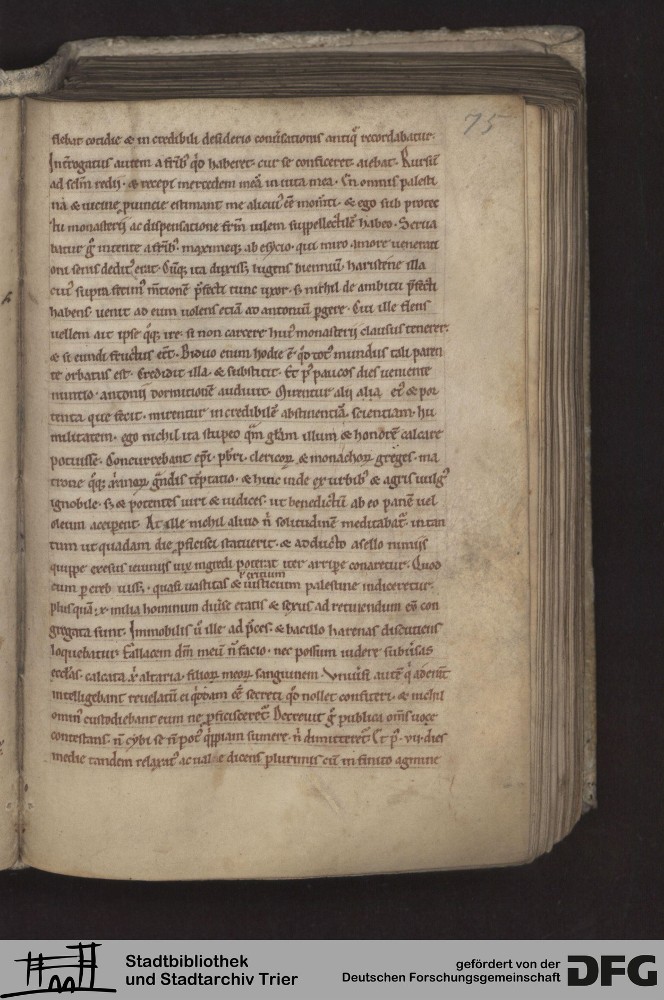 75
flebat cotidie & in credibili desiderio conuˀsationis antiqͥ recordabatur.
Intˀrogatus autem a frībꝰ qͦd haberet. cur se conficeret. aiebat. Rursū
ad sclm redii. & recepi mercedem meā in uita mea. En omnis palesti
na & uicine ꝓuincie estimant me alicuiꝰ eē momti. & ego sub ꝓtec
tu monasterii ac dispensatione frm uilem suppellectilē habeo. Serua
batur gͦ intente a fribꝰ. maximeqꝫ ab esycio. qui miro amore uenerati
oni senis deditꝰ erat. Cūqꝫ ita duxissꝫ lugens bienniū. haristene illa
cuiꝰ supra fecimꝰ mtionē p̄fecti tunc uxor. sꝫ nichil de ambitu p̄fecti
habens. uenit ad eum uolens etiā ad antoniū ꝑgere. Cui ille flens
uellem ait ipse qͦqꝫ ire. si non carcere huiꝰ monasterii clausus tenerer.
& si eundi fructus eēt. Biduo enim hodie ē qͦd totꝰ mundus tali paren
te orbatus est. Credidit illa. & substitit. Et pꝰ paucos dies ueniente
nuntio. antonii dormitionē audiuit. Mirentur alii alia &
tenta que fecit. mirentur incredibilē abstinentiā. scientiam. hu
militatem. ego nichil ita stupeo qm gl̄am illum & honorē calcare
potuisse. Concurrebant epi. pbri. clericoꝝ & monachoꝝ greges. ma
trone qͦqꝫ xpianoꝝ gͣndis tēptatio. & hinc inde ex urbibꝰ & agris uulgꝰ
ignobile. sꝫ & potentes uiri & iudices. ut benedictū ab eo panē uel
oleum acciperent. At ille nichil aliud nͥ solitudinē meditabatˀ. in tan
tum ut quadam die ꝓficisci statuerit. & adducto asello nimis
quippe exesus ieiuniis uix ingredi poterat iter arripe conaretur. Quod
exitium
cum ꝑ creb uissꝫ. quasi uastitas & iusticium palestine indiceretur.
plusquā .x. milia hominum diuˀse etatis & sexus ad retinendum eū con
gregata sunt. Immobilis uͦ ille ad p̄ces. & bacillo harenas discutiens
loquebatur. fallacem dm meū ñ facio. nec possum uidere subuˀsas
ecclas. calcata xͥ altaria. filioꝝ meoꝝ sanguinem. Vniuˀsi autē qͥ aderāt
intelligebant reuelatū ei qͦddam eē secreti qͦd nollet confiteri. & nichil
omin custodiebant eum ne ꝓficisceretˀ. Decreuit gͦ publica oms uoce
contestans. ñ cybi se ñ potꝰ qͥppiam sumere. nͥ dimitteretˀ. Et pꝰ .vii. dies
medie tandem relaxatꝰ ac uale dicens plurimis cū infinito agmine
Stadtbibliothek
und Stadtarchiv Trier
gefördert von der
Deutschen Forschungsgemeinschaft
DFG